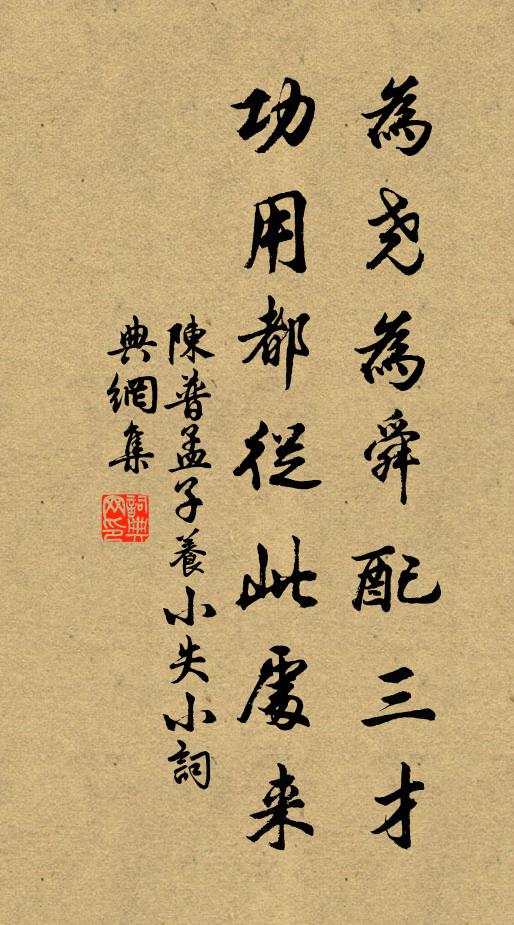 為尧為舜配三才
功用都從此處来
陳普孟子養小失小詞
典網集
詞典网印